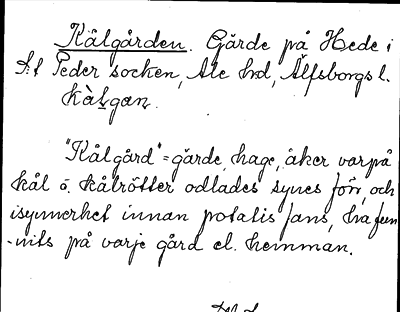 Kålgården. Gärde på Hede i
S:t Peder socken, Ale hd, Älfsborgs l.
kà̀lgan.
"Kålgård" = gärde, hage, åker varpå
kål o. kålrötter odlades synes förr, och
isynnerhet innan potatis fans, ha fun-
nits på varje gård el. hemman.